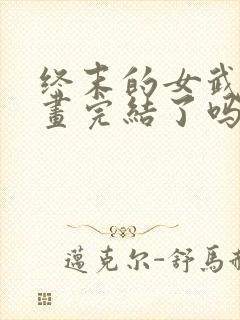 终末的女武
畫完結了吗
邁克尔-舒馬赫